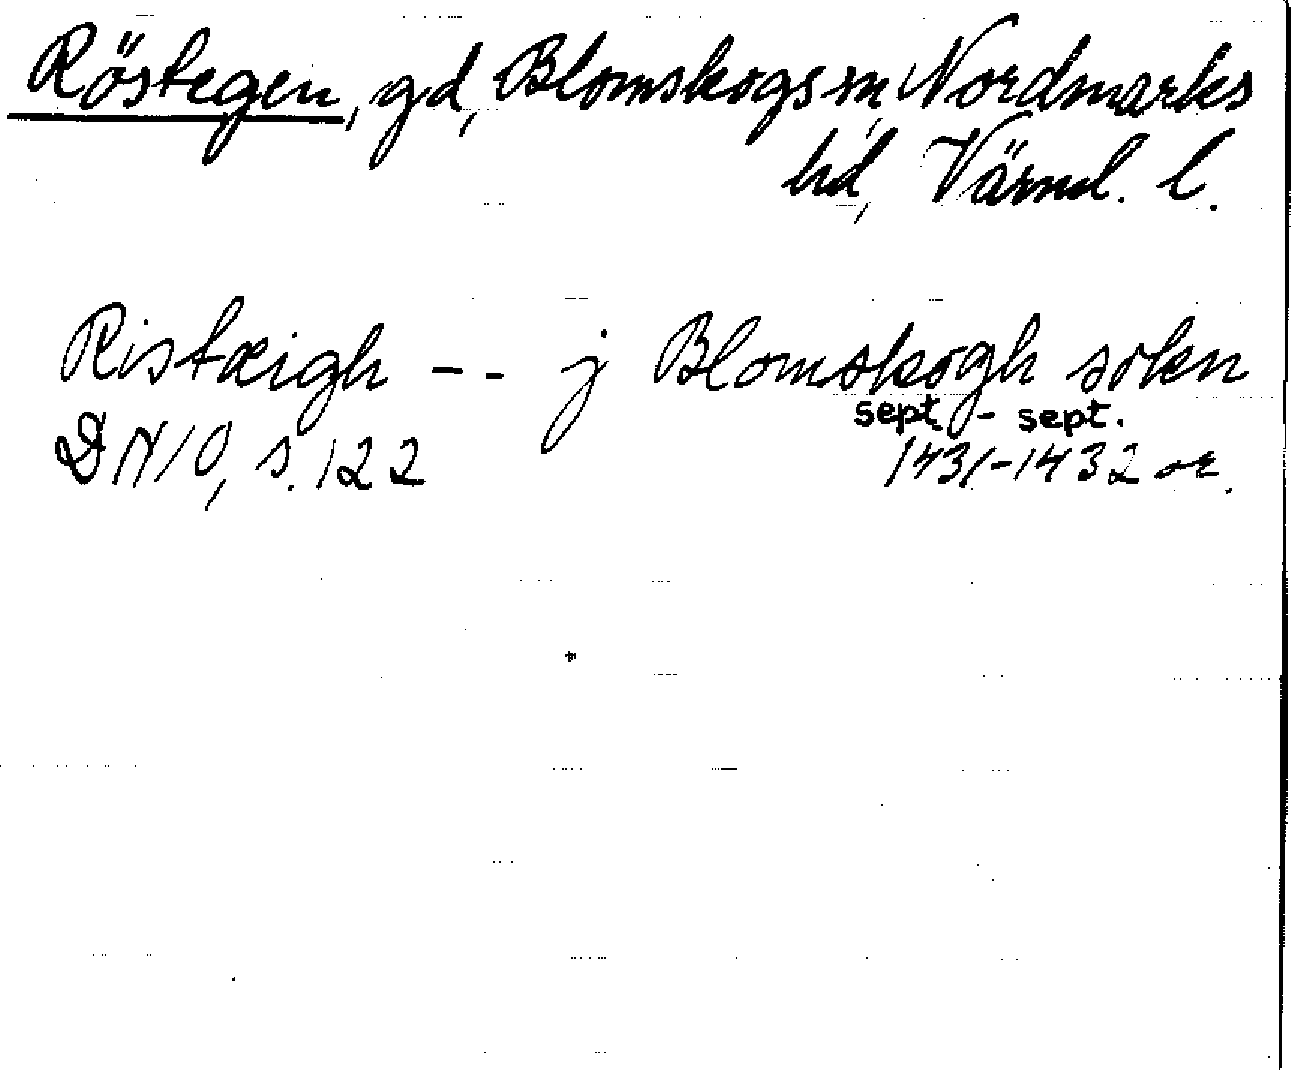 Röstegen, gd, Blomskogs sn, Nordmarks
hd, Värml. l.
Ristæigh -- j Blomskogh sokn
sept. - sept.
DN 10, s. 122 1431-1432 or.